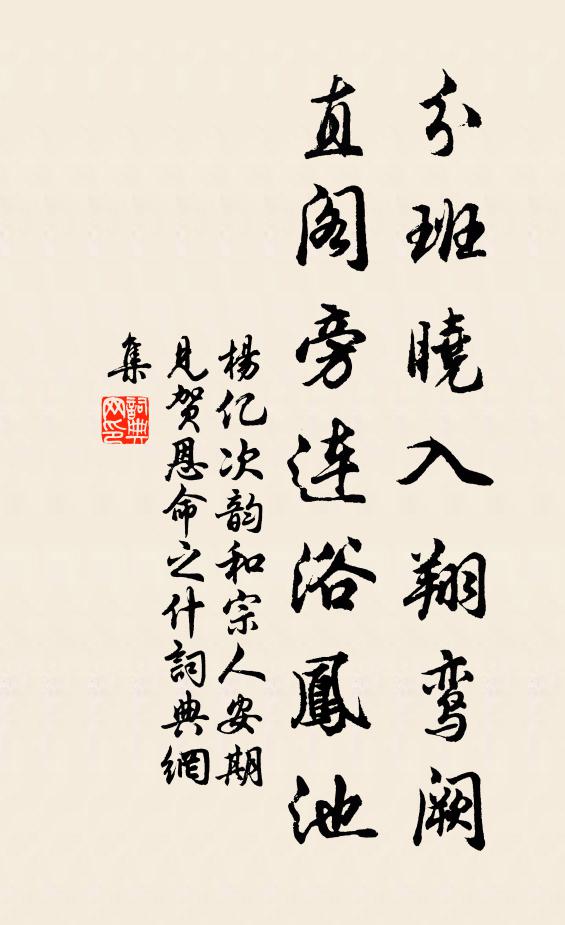 分班曉入翔鸾阙
直阁旁連浴鳳池
楊亿次韵和宗人安期
見贺恩命之什詞典網
集
詞典
网印